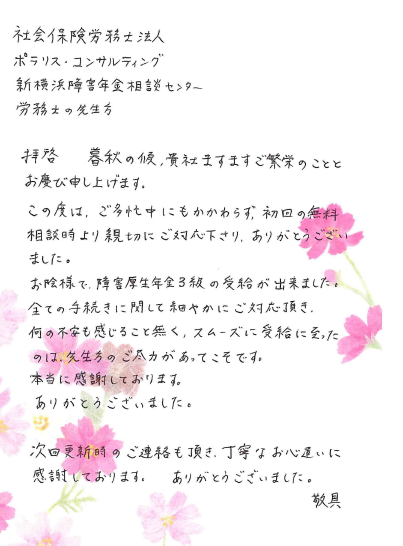 社会保険労務士法人
ポラリス・コンサルティング
新横浜障害年金相談センター
労務士の先生方
拝啓　暮秋の候,貴社ますますご繁栄のことと
お慶び申し上げます。
この度は、ご多忙中にもかかわらず、初回の無料
相談時より親切にご対応下さり、ありがとうござい
ました。
お陰様で、障害厚生年金3級の受給が出来ました。
全ての手続きに関して細やかにご対応頂き、
何の不安も感じること無く、スムーズに受給に至った
のは、先生方のご尽力があってこそです。
本当に感謝しております。
ありがとうございました。
次回更新時のご連絡も頂き、丁寧なお心遣いに
感謝しております。　ありがとうございました。
敬具